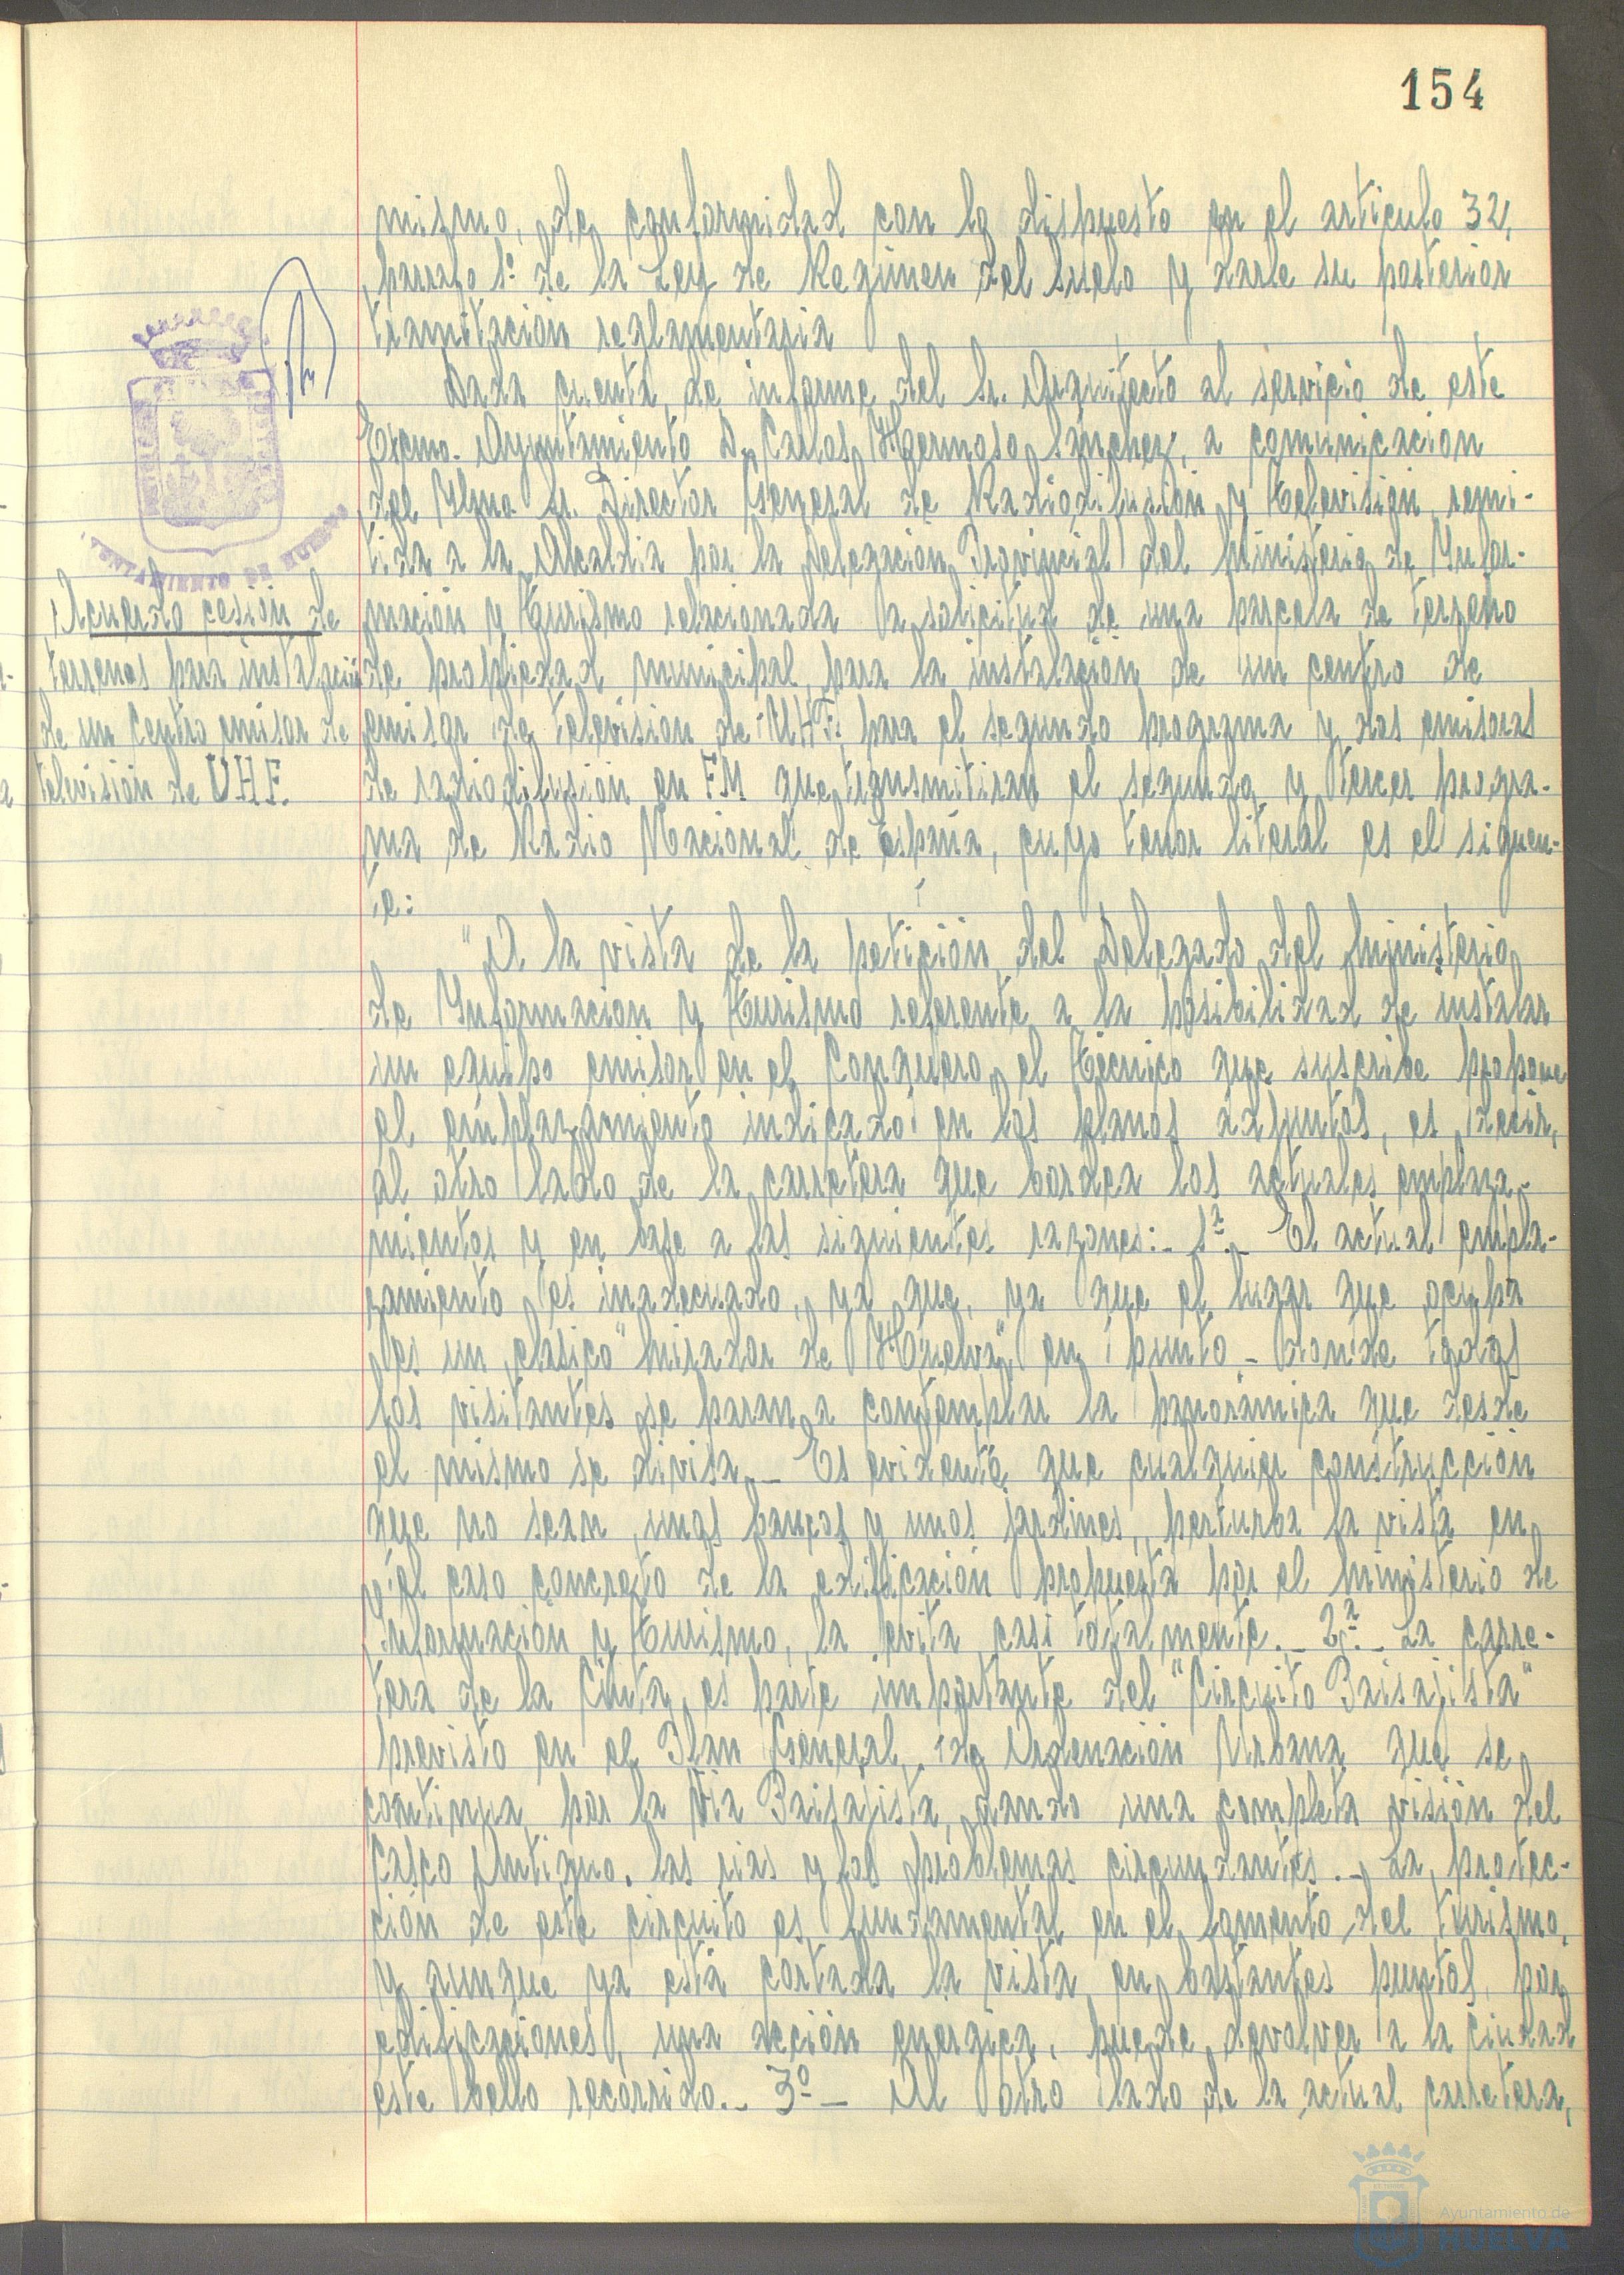 154
mismo, de conformidad con lo dispuesto en el artículo 32,
párrafo 1º de la Ley de Regimen del Suelo y darle su posterior
tramitación reglamentaria
Dada cuenta de informe del Sr. Arquitecto al servicio de este
Excmo. Ayuntamiento D. Carlos Hermoso Sánchez, a comunicación
del Ylmo. Sr. Director General de Radiodifusión y Televisión, remi-
tida a la Alcaldía por la Delegación Provincial del Ministerio de Infor-
mación y Turismo relacionada a solicitud de una parcela de terreno
de propiedad municipal, para la instalación de un centro de
emisor de televisión de UHF, para el segundo programa y dos emisoras
de radiodifusión en FM que transmitiran el segundo y tercer progra-
ma de Radio Nacional de España, cuyo tenor literal es el siguen-
te:
"A la vista de la petición del Delegado del Ministerio
de Información y Turismo referente a la posibilidad de instalar
un equipo emisor en el Conquero, el Técnico que suscribe propone
el emplazamiento indicado en los planos adjuntos, es decir,
al otro lado de la carretera que bordea los actuales emplaza-
mientos y en base a las siguientes razones:- 1ª.- El actual empla-
zamiento es inadecuado, ya que, ya que el lugar que ocupa
es un clasico "Mirador de Huelva" en punto - donde todos
los visitantes se paran a contemplar la panorámica que desde
el mismo se divisa.- Es evidente que cualquier construcción
que no sean unos bancos y unos jardines, perturba la vista en
el caso concreto de la edificación propuesta por el Ministerio de
Información y Turismo, la evita casi totalmente.- 2ª.- La carre-
tera de la Cinta, es parte importante del "Circuito Paisajista"
previsto en el Plan General de Ordenación Urbana que se
continua por la Vía Paisajista, dando una completa visión del
Casco Antiguo, las rias y los problemas circundantes.- La protec-
ción de este circuito es fundamental en el fomento del turismo,
y aunque ya está cortada la vista en bastantes puntos, por
edificaciones, una acción energica, puede devolver a la Ciudad
este bello recorrido.- 3º - Al otro lado de la actual carretera,
Acuerdo cesión de
terrenos para instalación
de un Centro emisor de
televisión de UHF.
AYUNTAMIENTO DE HUELVA
Ayuntamiento de
HUELVA